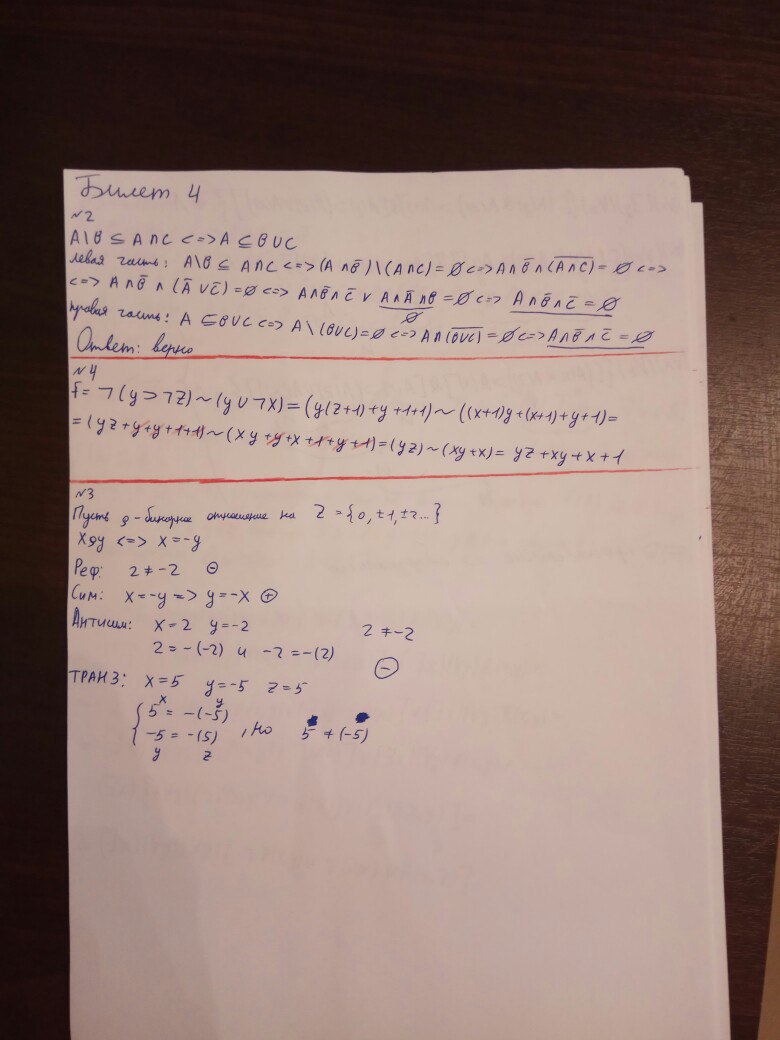 Билет 4
№2
A\B ⊆ A∩C <=> A ⊆ B∪C
левая часть: A\B ⊆ A∩C <=> (A∩B̅)\(A∩C)=∅ <=> A∩B̅∩(A̅∩̅C̅)=∅ <=>
<=> A∩B̅∩(A̅∪C̅)=∅ <=> A∩B̅∩C̅ ∨ A∩A̅∩B=∅ <=> A∩B̅∩C̅=∅
∅
правая часть: A ⊆ B∪C <=> A\(B∪C)=∅ <=> A∩(B̅∪̅C̅)=∅ <=> A∩B̅∩C̅=∅
Ответ: верно
№4
f= ¬(y⊃¬z)~(y∪¬x)=(y(z+1)+y+1+1)~((x+1)y+(x+1)+y+1)=
=(yz+y+y+1+1)~(xy+y+x+1+y+1)=(yz)~(xy+x)= yz+xy+x+1
№3
Пусть ρ-бинарное отношение на Z={0,±1,±2...}
xρy <=> x=-y
Реф: 2≠-2 ⊖
Сим: x=-y => y=-x ⊕
Антисим: x=2 y=-2 2≠-2
2=-(-2) и -2=-(2) ⊖
ТРАНЗ: x=5 y=-5 z=5
x y
{ 5=-(-5)
-5=-(5) , но 5≠(-5)
y z